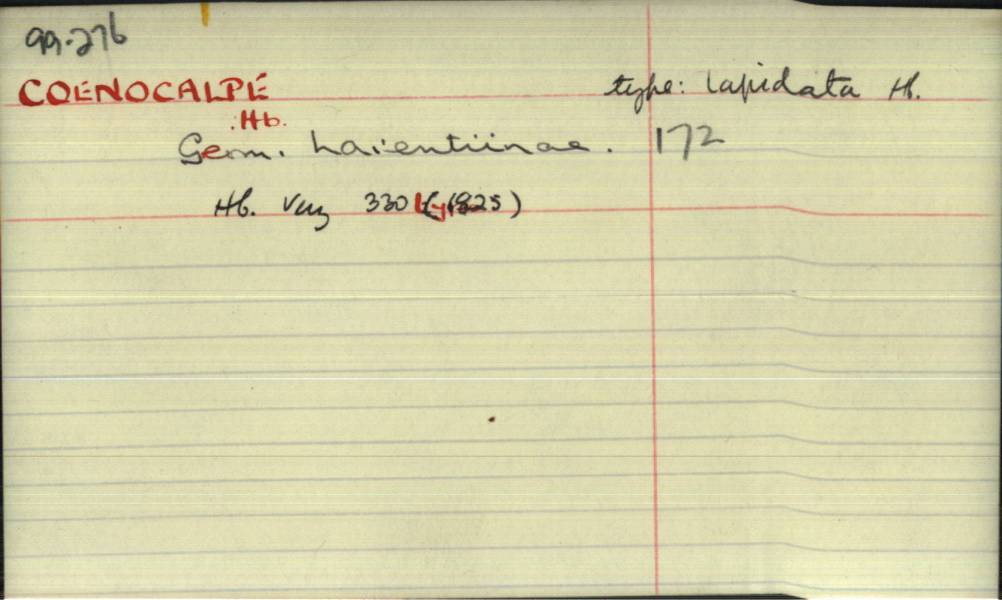 99-276
COENOCALPÉ type: lapidata Hb.
Hb.
Geom. Larentiinae. 172
Hb. Verz 330 (1825)